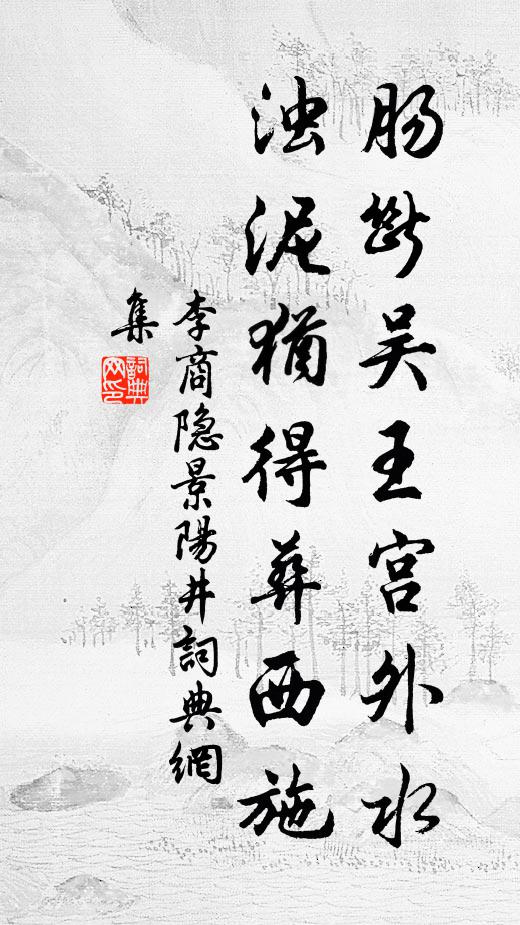 肠断吴王宫外水
浊泥犹得葬西施
李商隐景陽井詞典網
集
詞典网印